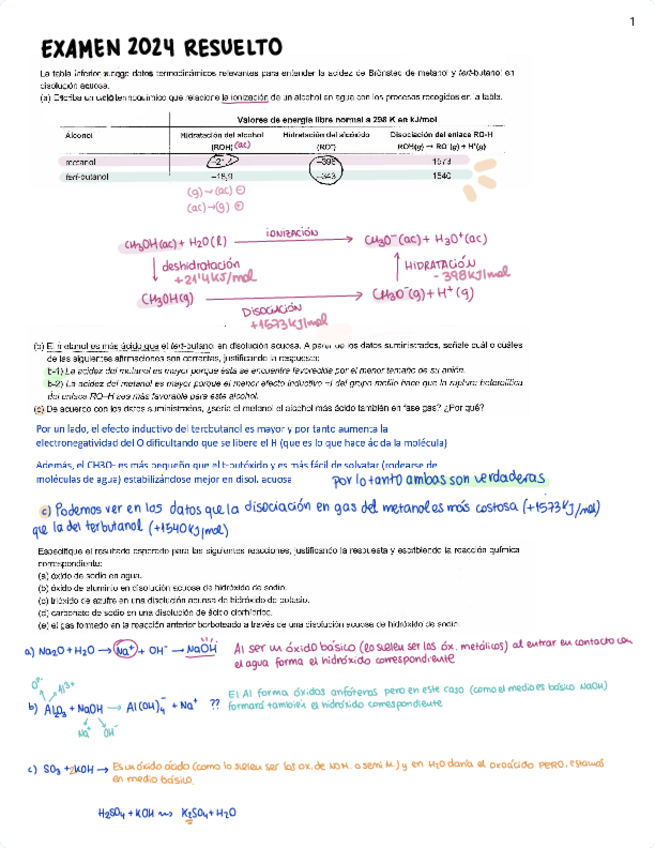 1
EXAMEN 2024 RESUELTO
La tabla inferior recoge datos termodinámicos relevantes para entender la acidez de Brönsted de metanol y tert-butanol en
disolución acuosa.
(a) Escriba un ciclo termoquímico que relacione la ionización de un alcohol en agua con los procesos recogidos en la tabla.
Valores de energía libre normal a 298 K en kJ/mol
Alcohol Hidratación del alcohol Hidratación del alcóxido Disociación del enlace RO-H
(ROH) (ac) (RO⁻) ROH(g) → RO⁻(g) + H⁺(g)
metanol −398 1573
tert-butanol −18,9 −343 1540
(g)→(ac) ⊖
(ac)→(g) ⊕
CH3OH(ac) + H2O(l) IONIZACIÓN → CH3O⁻(ac) + H3O⁺(ac)
↓ deshidratación ↑ HIDRATACIÓN
+21'4 kJ/mol - 398 kJ/mol
CH3OH(g) → CH3O⁻(g) + H⁺(g)
DISOCIACIÓN
+1573 kJ/mol
(b) El metanol es más ácido que el tert-butanol en disolución acuosa. A partir de los datos suministrados, señale cuál o cuáles
de las siguientes afirmaciones son correctas, justificando la respuesta:
b-1) La acidez del metanol es mayor porque ésta se encuentra favorecida por el menor tamaño de su anión.
b-2) La acidez del metanol es mayor porque el menor efecto inductivo +I del grupo metilo hace que la ruptura heterolítica
del enlace RO–H sea más favorable para este alcohol.
(c) De acuerdo con los datos suministrados, ¿sería el metanol el alcohol más ácido también en fase gas? ¿Por qué?
Por un lado, el efecto inductivo del tercbutanol es mayor y por tanto aumenta la
electronegatividad del O dificultando que se libere el H (que es lo que hace ácida la molécula)
Además, el CH3O- es más pequeño que el t-butóxido y es más fácil de solvatar (rodearse de
moléculas de agua) estabilizándose mejor en disol. acuosa por lo tanto ambas son verdaderas
c) Podemos ver en los datos que la disociación en gas del metanol es más costosa (+1573 kJ/mol)
que la del terbutanol (+1540 kJ/mol)
Especifique el resultado esperado para las siguientes reacciones, justificando la respuesta y escribiendo la reacción química
correspondiente:
(a) óxido de sodio en agua.
(b) óxido de aluminio en disolución acuosa de hidróxido de sodio.
(c) trióxido de azufre en una disolución acuosa de hidróxido de potasio.
(d) carbonato de sodio en una disolución de ácido clorhídrico.
(e) el gas formado en la reacción anterior borboteado a través de una disolución acuosa de hidróxido de sodio.
a) Na2O + H2O → Na⁺ + OH⁻ → NaOH Al ser un óxido básico (lo suelen ser los óx. metálicos) al entrar en contacto con
el agua forma el hidróxido correspondiente
O²⁻ Al³⁺
b) Al2O3 + NaOH → Al(OH)4⁻ + Na⁺ ?? El Al forma óxidos anfóteros pero en este caso (como el medio es básico NaOH)
formará también el hidróxido correspondiente
Na⁺ OH⁻
c) SO3 + 2KOH → Es un óxido ácido (como lo suelen ser los ox. de NO M. o semi M.) y en H2O daría el oxoácido PERO, estamos
en medio básico.
H2SO4 + KOH ⇝ K2SO4 + H2O